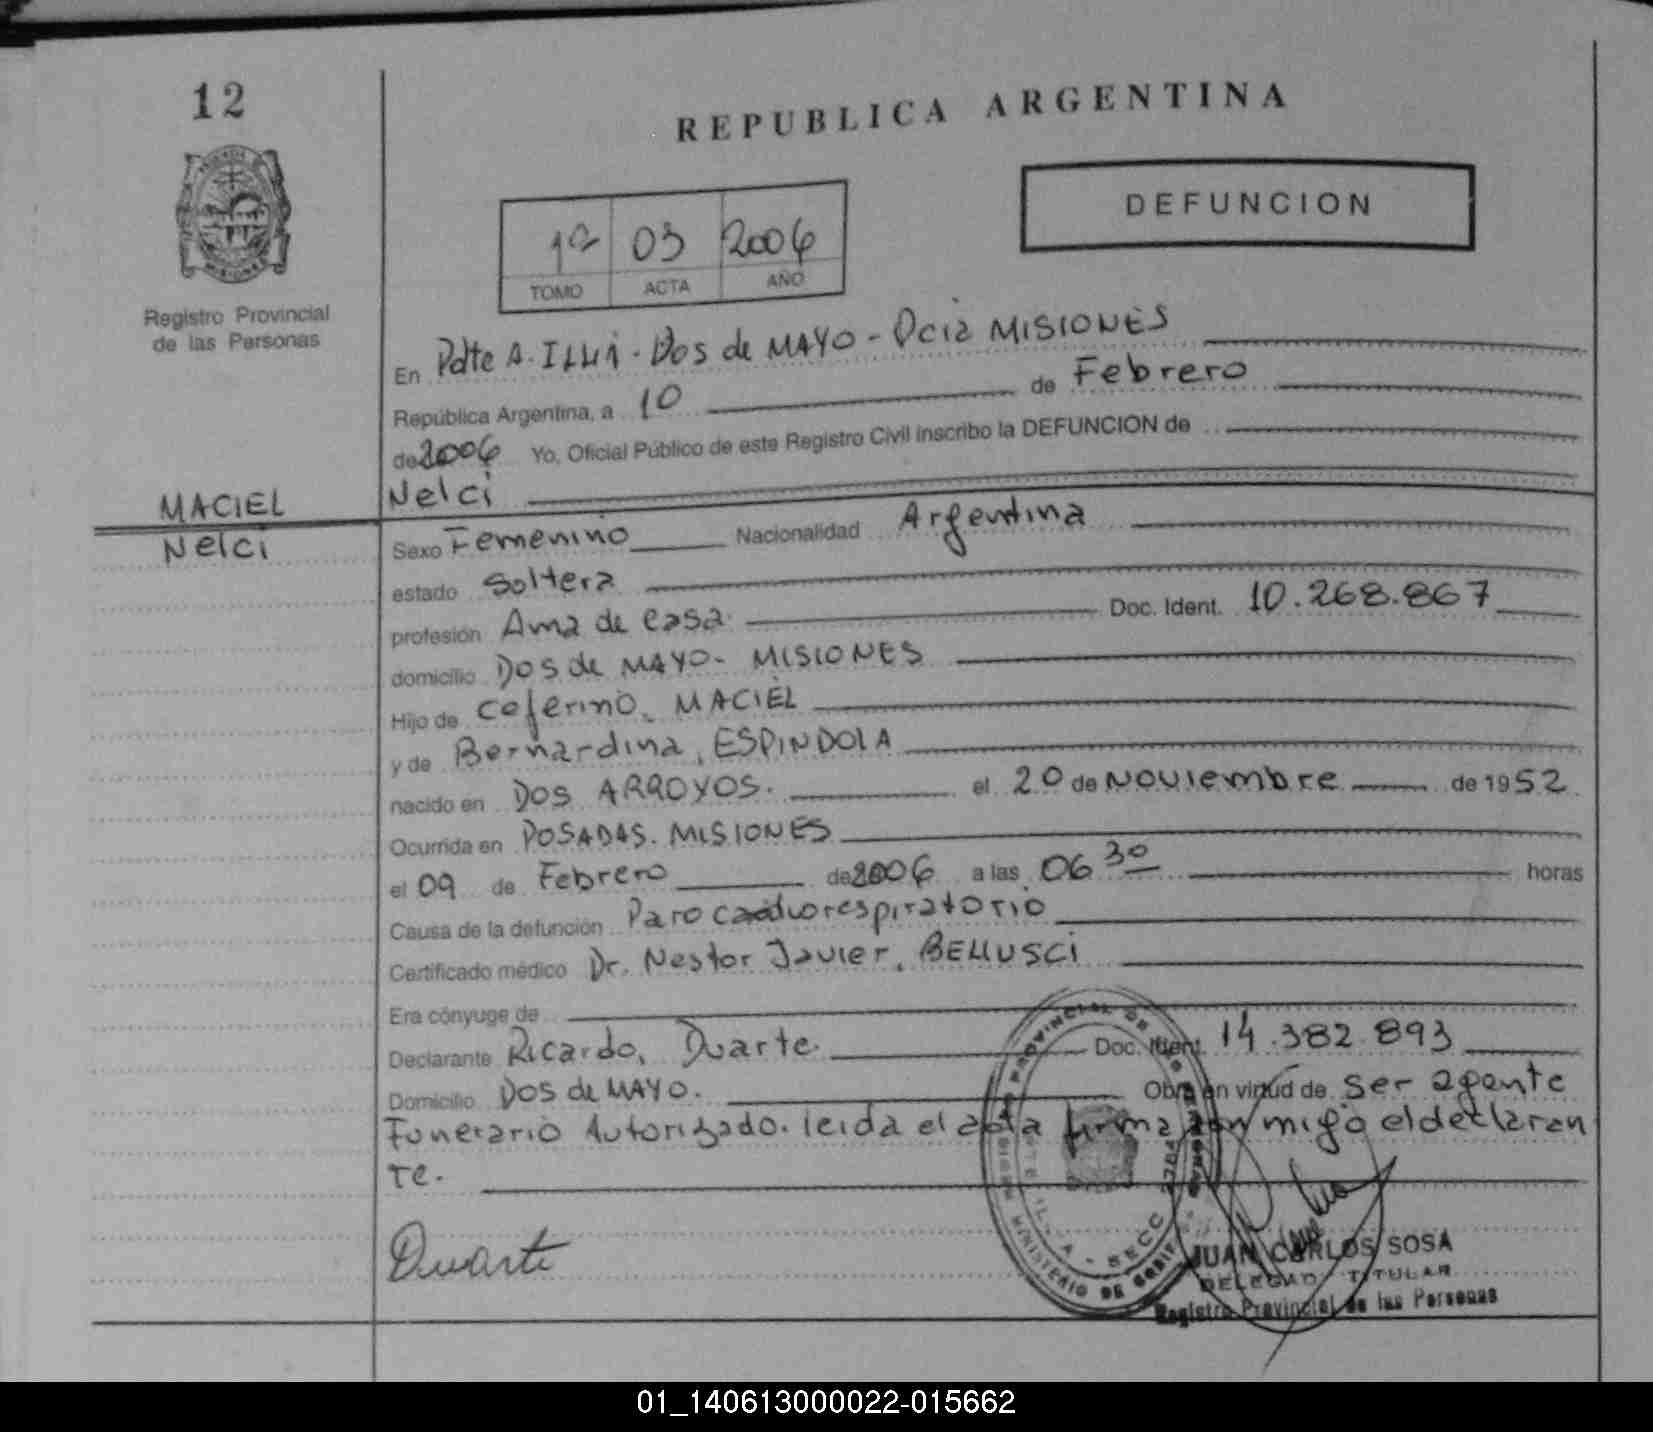 12
REPUBLICA ARGENTINA
DEFUNCION
1º 03 2006
TOMO ACTA AÑO
Registro Provincial
de las Personas
En Pdte A. ILLIA - Dos de MAYO - Pcia MISIONES
República Argentina, a 10 de Febrero
de 2006 Yo, Oficial Público de este Registro Civil inscribo la DEFUNCION de
MACIEL
Nelci
Nelci
Sexo Femenino Nacionalidad Argentina
estado Soltera
profesión Ama de casa. Doc. Ident. 10.268.867
domicilio Dos de MAYO - MISIONES
Hijo de Ceferino, MACIEL
y de Bernardina, ESPINDOLA
nacido en DOS ARROYOS. el 20 de Noviembre de 1952
Ocurrida en POSADAS. MISIONES
el 09 de Febrero de 2006 a las 06 30 horas
Causa de la defunción Paro cardiorespiratorio
Certificado médico Dr. Nestor Javier, BELLUSCI
Era cónyuge de
Declarante Ricardo, Duarte. Doc. Ident. 14.382.893
Domicilio Dos de MAYO. Obra en virtud de ser agente
Funerario Autorizado. leida el acta firma con migo el declaran
te.
Duarte
JUAN CARLOS SOSA
DELEGADO TITULAR
Registro Provincial de las Personas
01_140613000022-015662